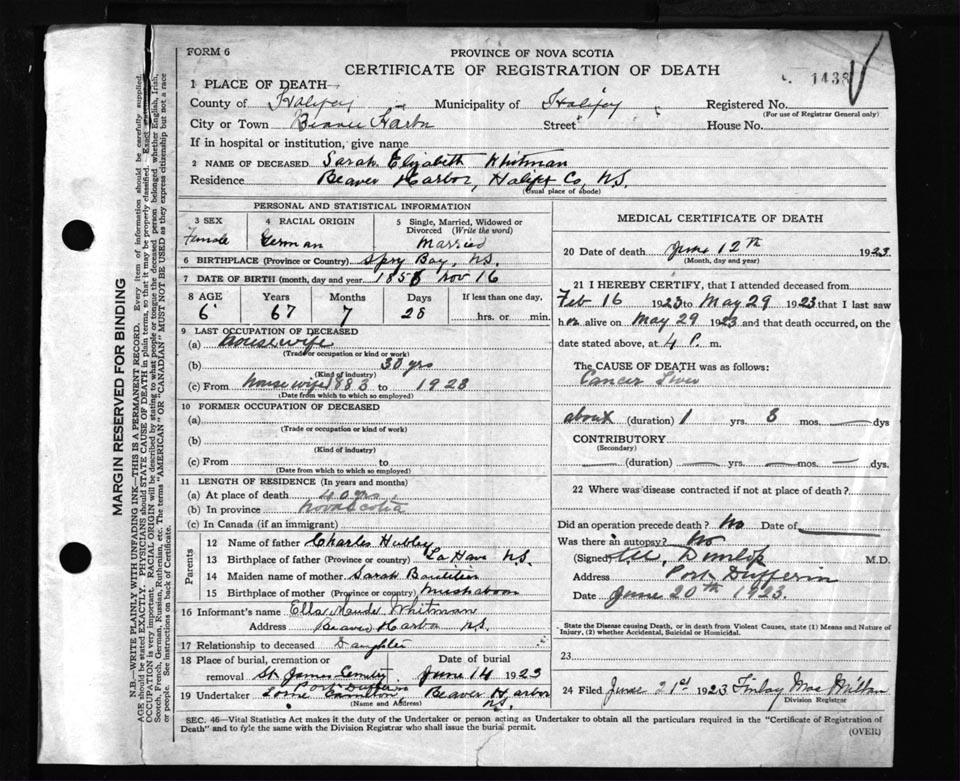 FORM 6
PROVINCE OF NOVA SCOTIA
CERTIFICATE OF REGISTRATION OF DEATH
1438
1 PLACE OF DEATH—
County of Halifax Municipality of Halifax Registered No.
(For use of Registrar General only)
City or Town Beaver Harbor Street House No.
If in hospital or institution, give name
2 NAME OF DECEASED Sarah Elizabeth Whitman
Residence Beaver Harbor, Halifax Co, N.S.
(Usual place of abode)
PERSONAL AND STATISTICAL INFORMATION
3 SEX 4 RACIAL ORIGIN 5 Single, Married, Widowed or Divorced (Write the word)
Female German Married
6 BIRTHPLACE (Province or Country) Spry Bay, N.S.
7 DATE OF BIRTH (month, day and year) Nov 16
8 AGE Years Months Days If less than one day,
6 67 7 28 hrs. or min.
9 LAST OCCUPATION OF DECEASED
(a) housewife
(Trade or occupation or kind or work)
(b) 30 yrs
(Kind of industry)
(c) From housewife 1883 to 1923
(Date from which to which so employed)
10 FORMER OCCUPATION OF DECEASED
(a)
(Trade or occupation or kind of work)
(b)
(Kind of industry)
(c) From to
(Date from which to which so employed)
11 LENGTH OF RESIDENCE (In years and months)
(a) At place of death 40 yrs
(b) In province Nova Scotia
(c) In Canada (if an immigrant)
Parents
12 Name of father Charles Hubley
13 Birthplace of father (Province or country) La Have N.S.
14 Maiden name of mother Sarah
15 Birthplace of mother (Province or country) Mushaboom
16 Informant's name Ella Maude Whitman
Address Beaver Harbor N.S.
17 Relationship to deceased Daughter
18 Place of burial, cremation or removal Date of burial
St. James Cemetry Port Dufferin June 14 1923
19 Undertaker Beaver Harbor N.S.
(Name and Address)
MEDICAL CERTIFICATE OF DEATH
20 Date of death June 12th 1923
(Month, day and year)
21 I HEREBY CERTIFY, that I attended deceased from
Feb 16 1923 to May 29 1923 that I last saw
her alive on May 29 1923 and that death occurred, on the
date stated above, at 4 P. m.
The CAUSE OF DEATH was as follows:
Cancer Liver
about (duration) 1 yrs. 3 mos. dys
CONTRIBUTORY
(Secondary)
(duration) yrs. mos. dys.
22 Where was disease contracted if not at place of death?
Did an operation precede death? No Date of
Was there an autopsy? No
(Signed) Dunlop M.D.
Address Port Dufferin
Date June 20th 1923.
State the Disease causing Death, or in Death from Violent Causes, state (1) Means and Nature of
Injury, (2) whether Accidental, Suicidal or Homicidal.
23
24 Filed June 21st 1923 Finlay Mac Millan
Division Registrar
SEC. 46—Vital Statistics Act makes it the duty of the Undertaker or person acting as Undertaker to obtain all the particulars required in the "Certificate of Registration of
Death" and to fyle the same with the Division Registrar who shall issue the burial permit.
(OVER)
MARGIN RESERVED FOR BINDING
N.B.—WRITE PLAINLY WITH UNFADING INK—THIS IS A PERMANENT RECORD. Every item of information should be carefully supplied.
AGE should be stated EXACTLY. PHYSICIANS should STATE CAUSE OF DEATH in plain terms, so that it may be properly classified. Exact
OCCUPATION is very important. RACIAL ORIGIN will be described by stating to what people or tongue the deceased person belonged whether English, Irish,
Scotch, French, German, Russian, Ruthenian, etc. The terms "AMERICAN" or "CANADIAN" MUST NOT BE USED as they express citizenship but not a race
or people. See instructions on back of Certificate.